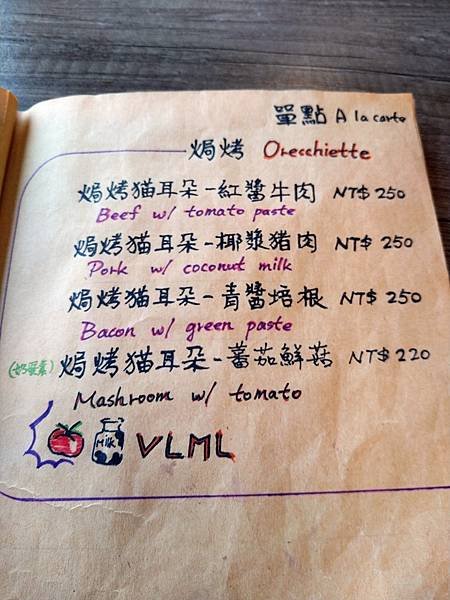 單點 A la carte
焗烤 Orecchiette
焗烤猫耳朵-紅醬牛肉 NT$ 250
Beef w/ tomato paste
焗烤猫耳朵-椰漿猪肉 NT$ 250
Pork w/ coconut milk
焗烤猫耳朵-青醬培根 NT$ 250
Bacon w/ green paste
(奶蛋素) 焗烤猫耳朵-蕃茄鮮菇 NT$ 220
Mashroom w/ tomato
Milk VLML